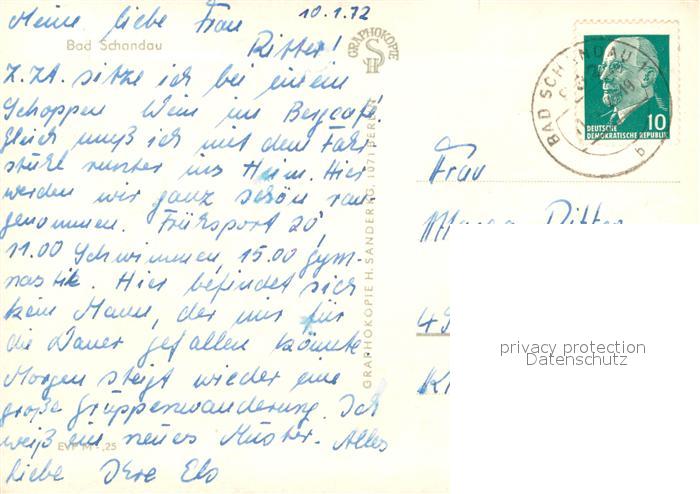 10.1.72
Meine liebe Frau
Bad Schandau
Ritter!
Z.Zt. sitze ich bei einem
Schoppen Wein im Bergcafé.
Gleich muß ich mit dem Fahr-
stuhl runter ins Heim. Hier
werden wir ganz schön ran
genommen. Frühsport 20',
11.00 Schwimmen, 15.00 Gym-
nastik. Hier befindet sich
kein Mann, der mir für
die Dauer gefallen könnte.
Morgen steigt wieder eine
große Gruppenwanderung. Ich
weiß ein neues Muster. Alles
EVP M -,25
Liebe Ihre Els
GRAPHOKOPIE
SH
GRAPHOKOPIE H. SANDER KG, 1071 BERLIN
BAD SCHANDAU 1
b
10
DEUTSCHE
DEMOKRATISCHE REPUBLIK
Frau
Ritter
privacy protection
Datenschutz